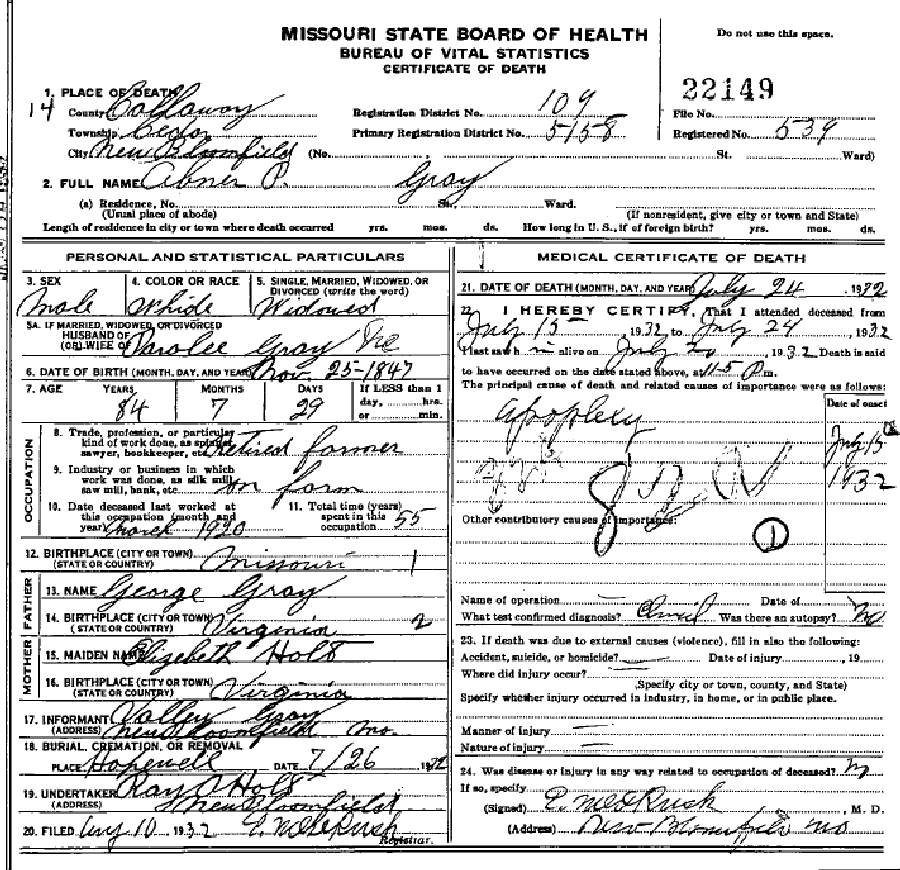 MISSOURI STATE BOARD OF HEALTH
BUREAU OF VITAL STATISTICS
CERTIFICATE OF DEATH
Do not use this space.
22149
1. PLACE OF DEATH
14 County Callaway Registration District No. 109 File No.
Township Cedar Primary Registration District No. 5158 Registered No. 539
City New Bloomfield (No. St. Ward)
2. FULL NAME Abner P. Gray
(a) Residence, No. St., Ward.
(Usual place of abode) (If nonresident, give city or town and State)
Length of residence in city or town where death occurred yrs. mos. ds. How long in U. S., if of foreign birth? yrs. mos. ds.
PERSONAL AND STATISTICAL PARTICULARS
3. SEX 4. COLOR OR RACE 5. SINGLE, MARRIED, WIDOWED, OR
DIVORCED (write the word)
Male White Widowed
5A. IF MARRIED, WIDOWED, OR DIVORCED
HUSBAND OF
(OR) WIFE OF Gray
6. DATE OF BIRTH (MONTH, DAY, AND YEAR) Nov. 25-1847
7. AGE YEARS MONTHS DAYS If LESS than 1
day, hrs.
or min.
84 7 29
OCCUPATION
8. Trade, profession, or particular
kind of work done, as spinner,
sawyer, bookkeeper, etc. Retired farmer
9. Industry or business in which
work was done, as silk mill,
saw mill, bank, etc. on farm
10. Date deceased last worked at
this occupation (month and
year) March 1920
11. Total time (years)
spent in this
occupation 55
12. BIRTHPLACE (CITY OR TOWN)
(STATE OR COUNTRY) Missouri 1
FATHER
13. NAME George Gray
14. BIRTHPLACE (CITY OR TOWN)
(STATE OR COUNTRY) Virginia 2
MOTHER
15. MAIDEN NAME Elizebeth Holt
16. BIRTHPLACE (CITY OR TOWN)
(STATE OR COUNTRY) Virginia
17. INFORMANT Valley Gray
(ADDRESS) New Bloomfield Mo.
18. BURIAL, CREMATION, OR REMOVAL
PLACE Hopewell DATE 7/26 1932
19. UNDERTAKER Ray Holt
(ADDRESS) New Bloomfield
20. FILED Aug 10, 1932 Rush
Registrar.
MEDICAL CERTIFICATE OF DEATH
21. DATE OF DEATH (MONTH, DAY, AND YEAR) July 24 1932
22. I HEREBY CERTIFY, That I attended deceased from
July 15 1932 to July 24 1932
I last saw h im alive on July 20 1932 Death is said
to have occurred on the date stated above, at P.m.
The principal cause of death and related causes of importance were as follows:
Date of onset
Apoplexy July 15
1932
Other contributory causes of importance:
1
Name of operation Date of
What test confirmed diagnosis? Clinical Was there an autopsy? No
23. If death was due to external causes (violence), fill in also the following:
Accident, suicide, or homicide? Date of injury , 19
Where did injury occur?
(Specify city or town, county, and State)
Specify whether injury occurred in industry, in home, or in public place.
Manner of injury
Nature of injury
24. Was disease or injury in any way related to occupation of deceased? No
If so, specify
(Signed) Rush , M. D.
(Address) New Bloomfield Mo